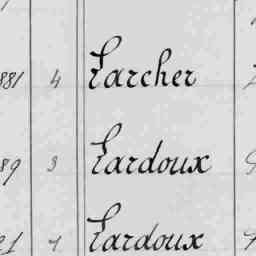 881 4 Larcher
89 3 Lardoux
91 4 Lardoux